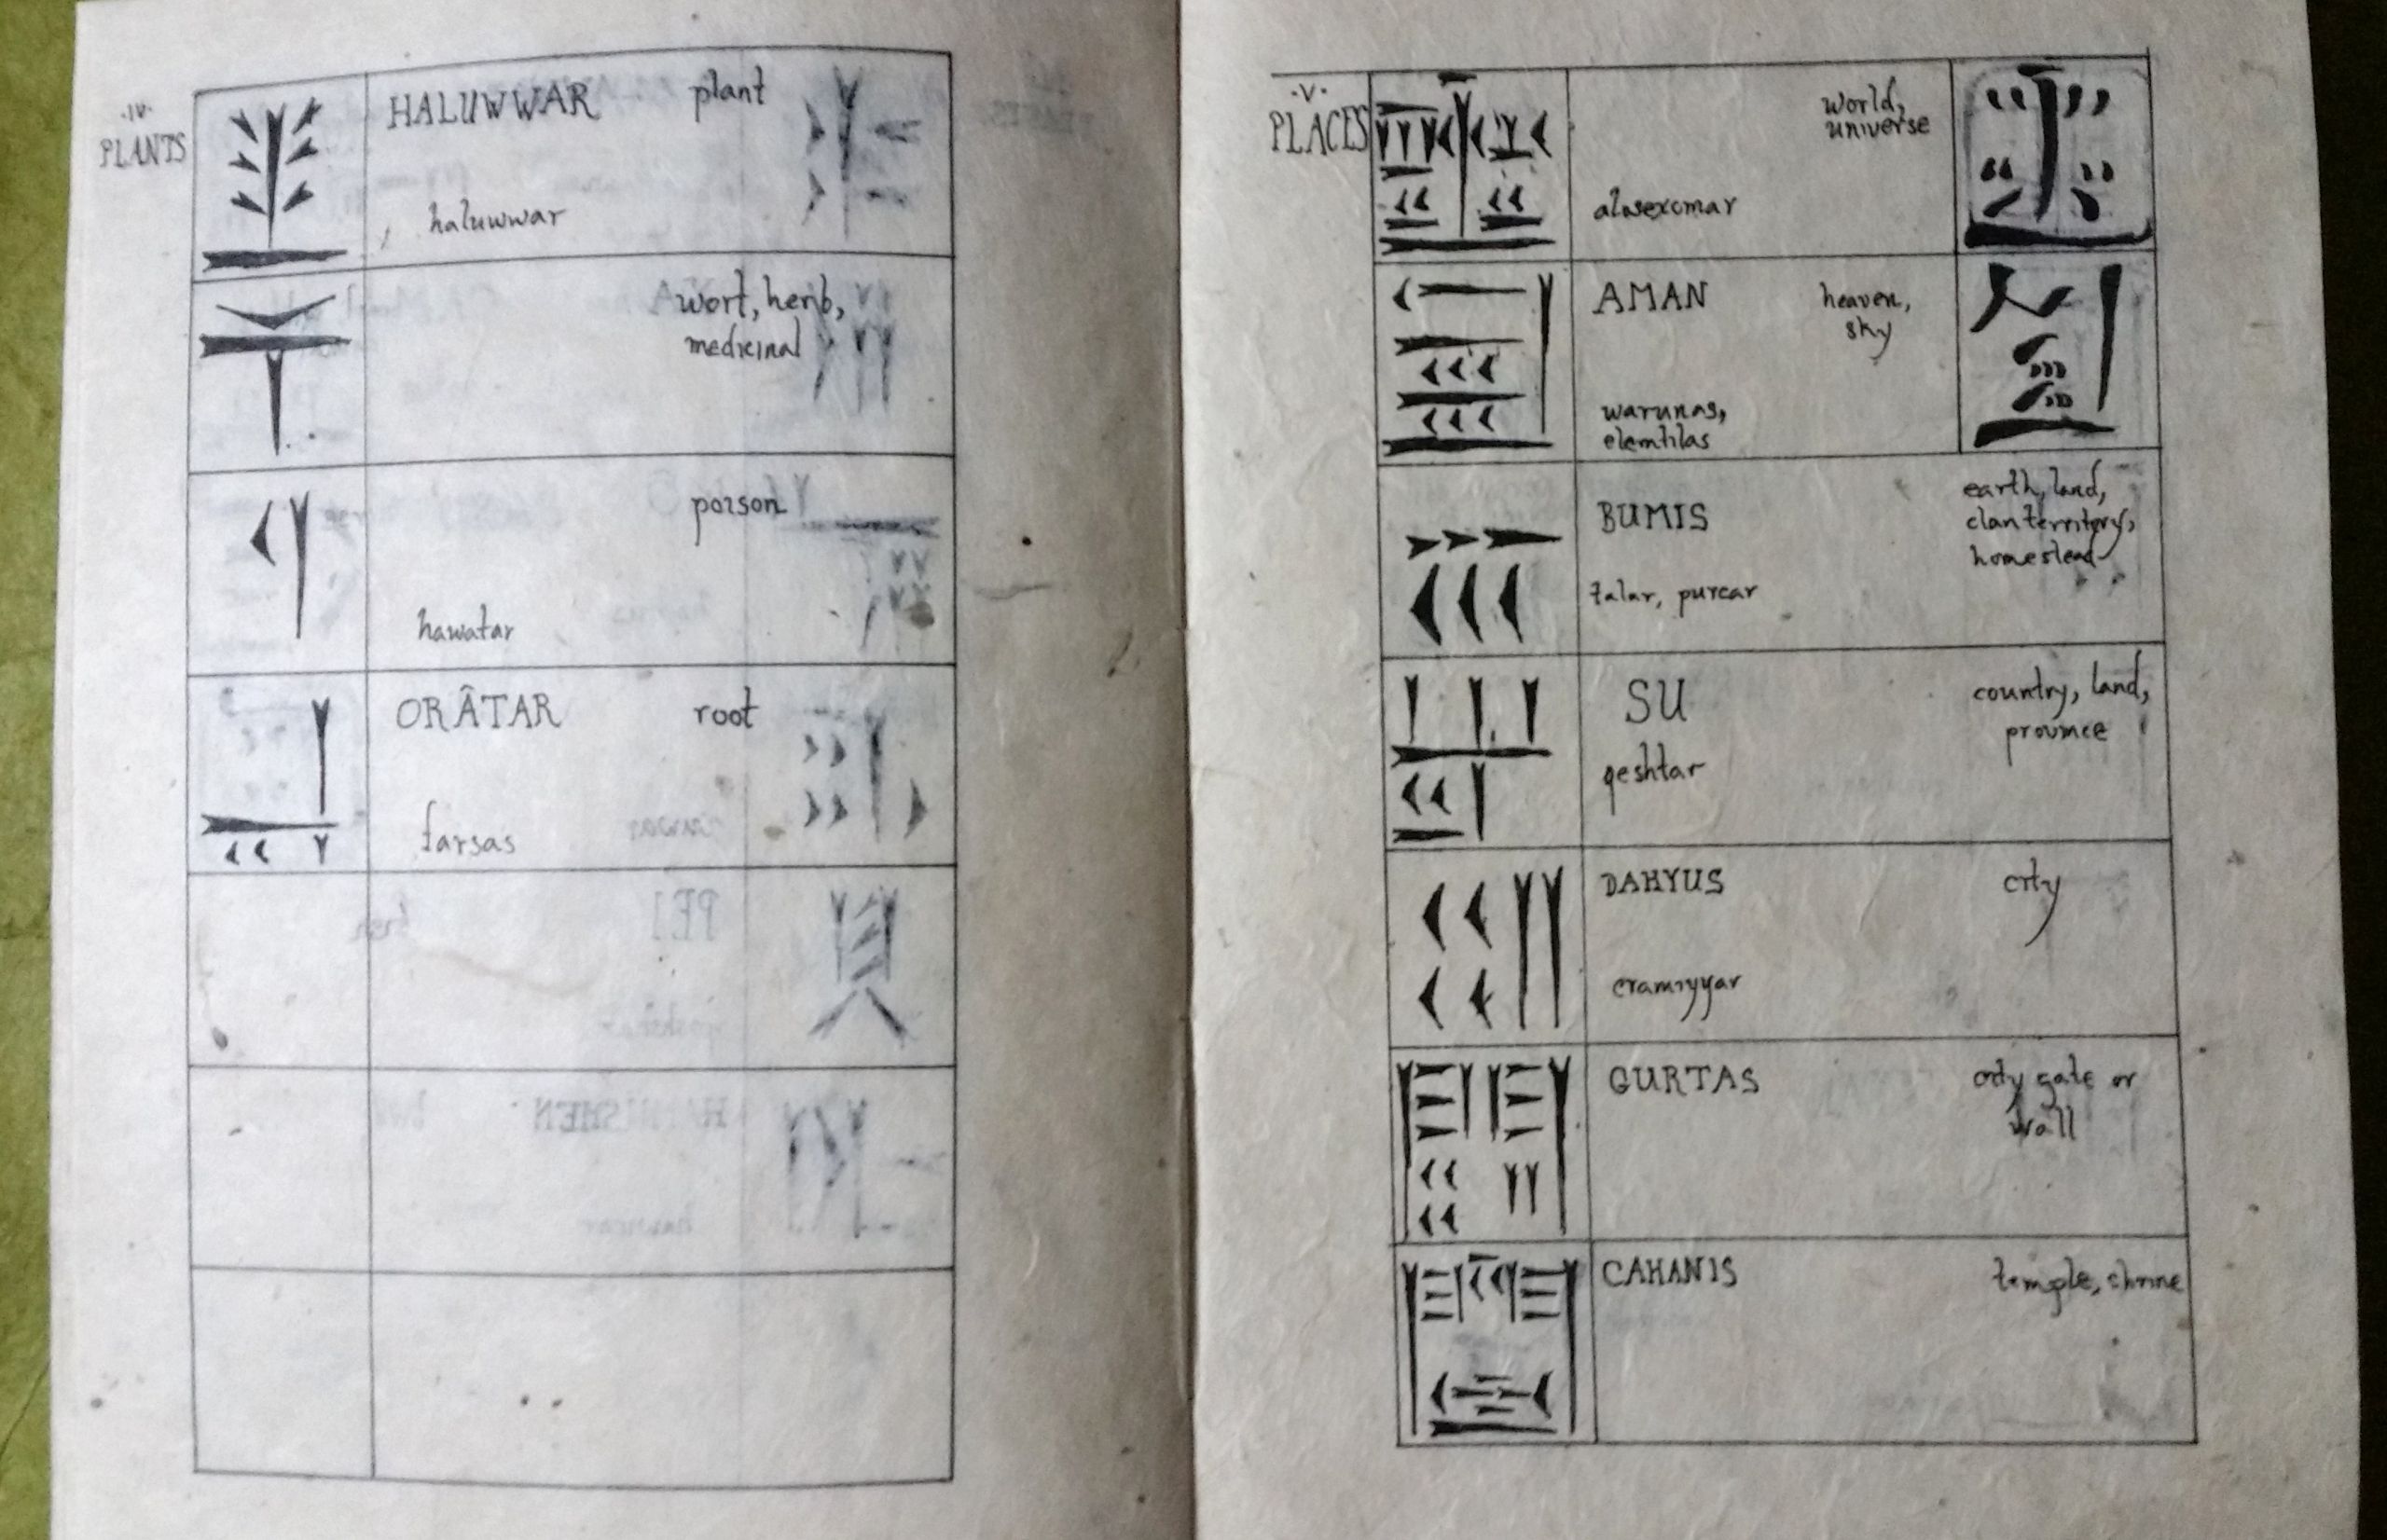 ·IV·
PLANTS
HALUWWAR plant
haluwwar
wort, herb,
medicinal
poison
hawatar
ORÂTAR root
farsas
·V·
PLACES
world,
universe
alasexomar
AMAN heaven,
sky
warunas,
elemtilas
BUMIS earth, land,
clan territory,
homestead
talar, purcar
SU country, land,
province
qeshtar
DAHYUS city
eramiyyar
GURTAS city gate or
wall
CAHANIS temple, shrine